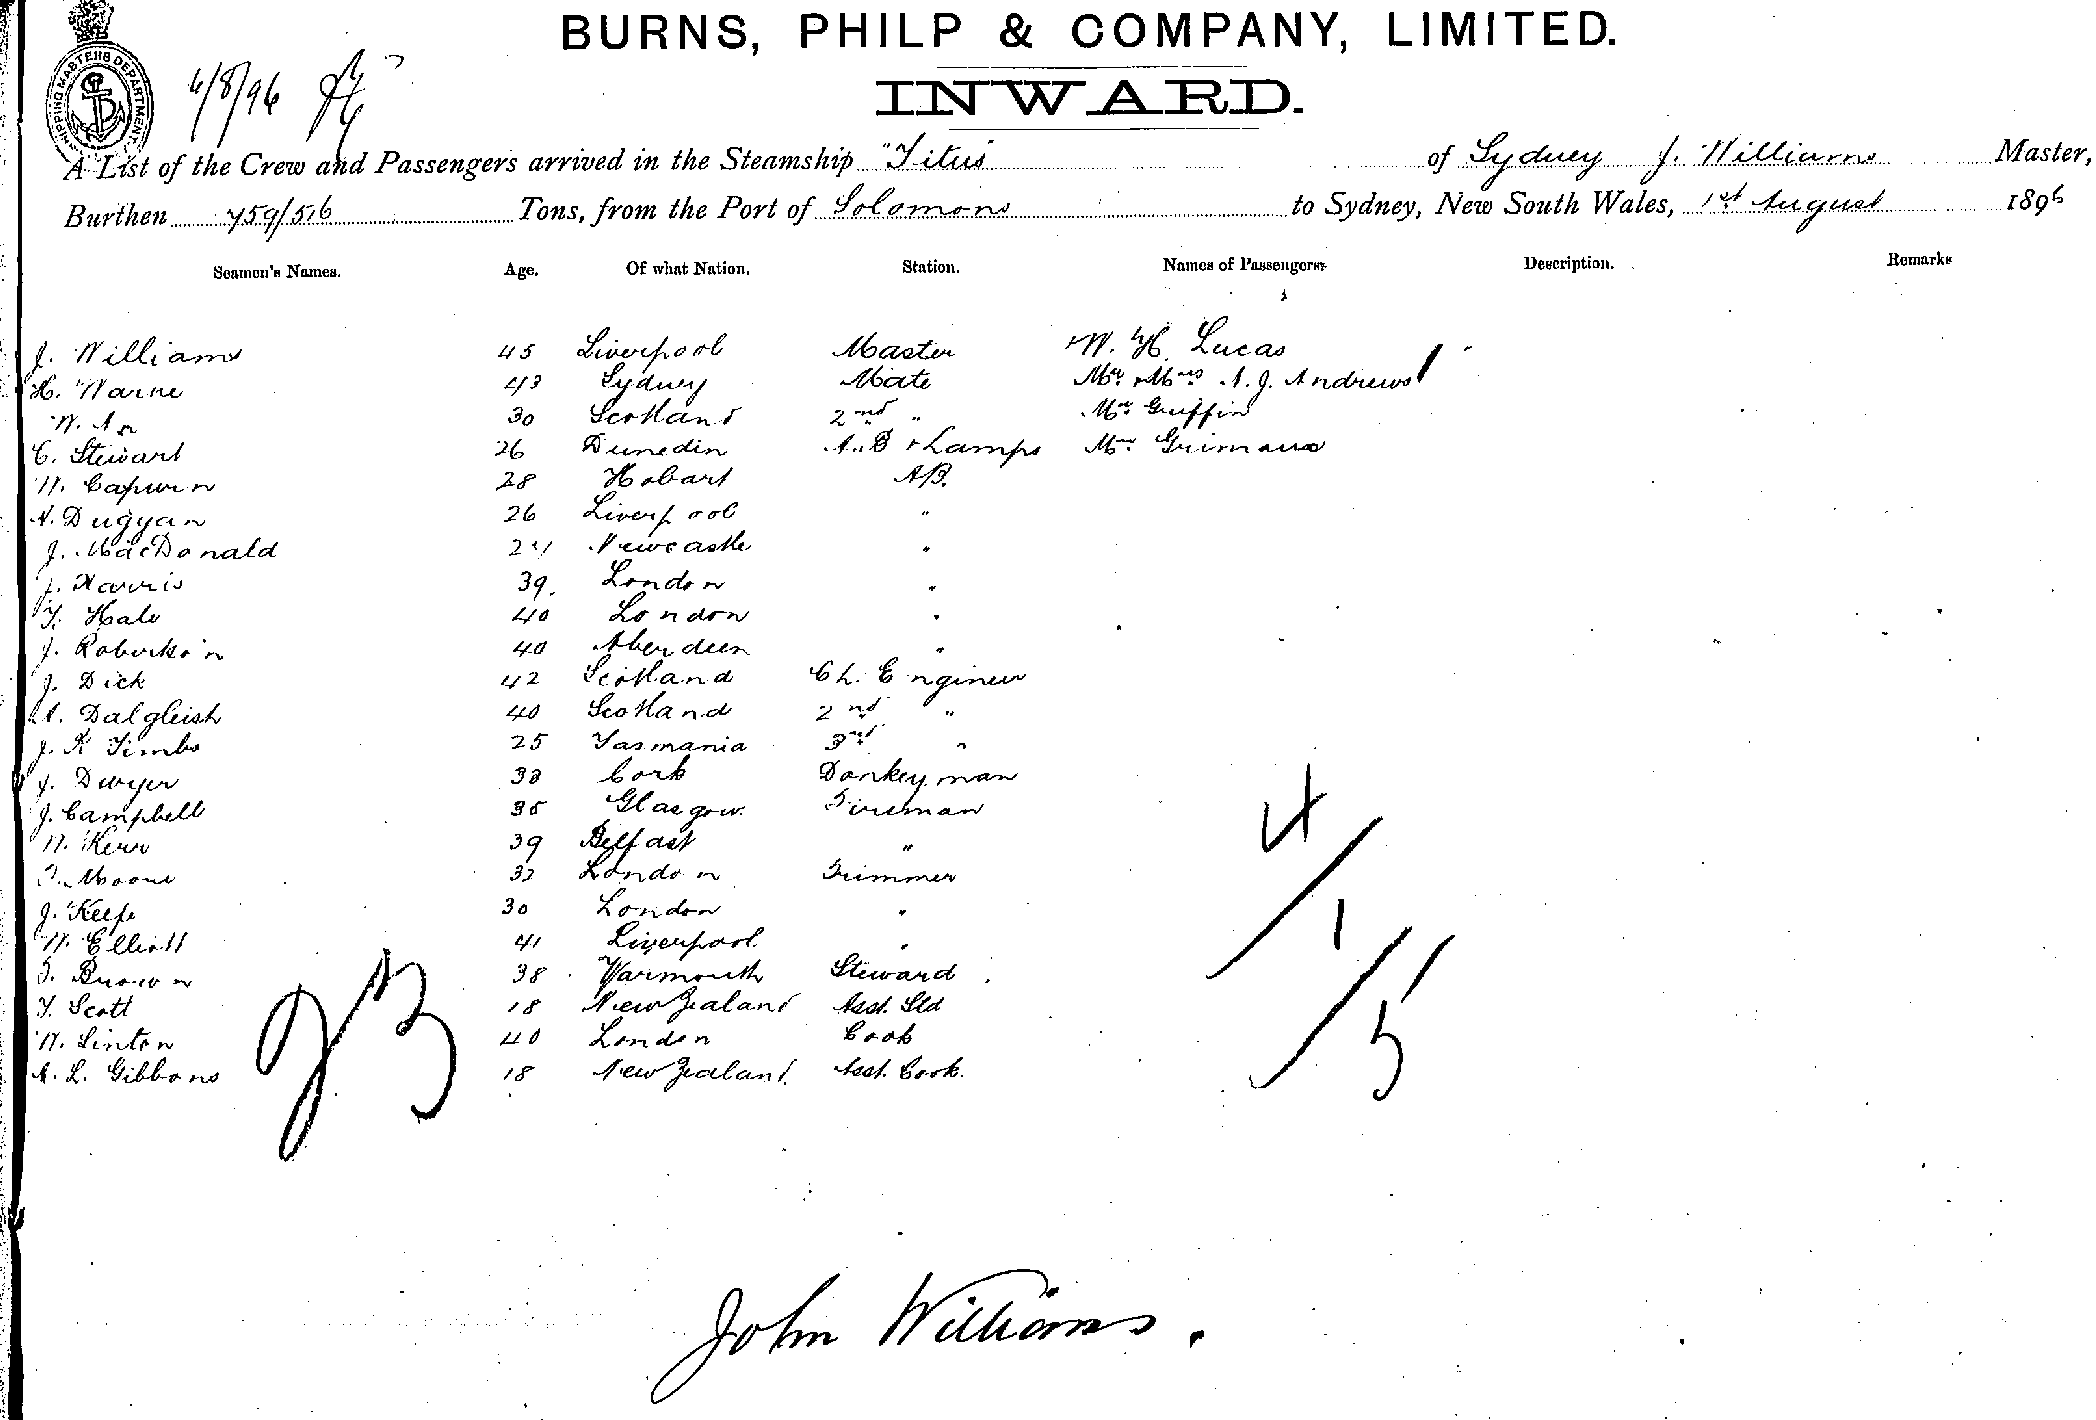 BURNS, PHILP & COMPANY, LIMITED.
INWARD.
SHIPPING MASTERS DEPARTMENT
6/8/96
A List of the Crew and Passengers arrived in the Steamship "Titus" of Sydney J. Williams Master,
Burthen 759/516 Tons, from the Port of Solomons to Sydney, New South Wales, 1st August 1896
Seamen's Names. Age. Of what Nation. Station. Names of Passengers. Description. Remarks
J. Williams 45 Liverpool Master W. H. Lucas
H. Warne 43 Sydney Mate Mr & Mrs A. J. Andrews
W. 30 Scotland 2nd " Mr Griffin
C. Stewart 26 Dunedin A.B & Lamps Mr
W. 28 Hobart AB.
A. Duggan 26 Liverpool "
J. MacDonald Newcastle "
J. Harris 39. London "
T. Hale 40 London "
J. Robertson 40 Aberdeen "
J. Dick 42 Scotland Ch. Engineer
A. Dalgleish 40 Scotland 2nd "
J. R Timbs 25 Tasmania 3rd "
J. Dwyer 38 Cork Donkeyman
J. Campbell 35 Glasgow. Fireman
W. Kerr 39 Belfast "
T. Moore 33 London Trimmer
J. Keefe 30 London "
W. Elliott 41 Liverpool "
T. Brown 38 Yarmouth Steward
T. Scott 18 New Zealand Asst. Std
W. Linton 40 London Cook
A. L. Gibbons 18 New Zealand. Asst. Cook.
23
4/1/5
John Williams.